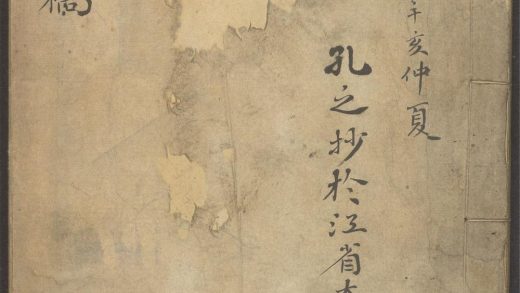 辛亥仲夏
孔之抄於江省
稿